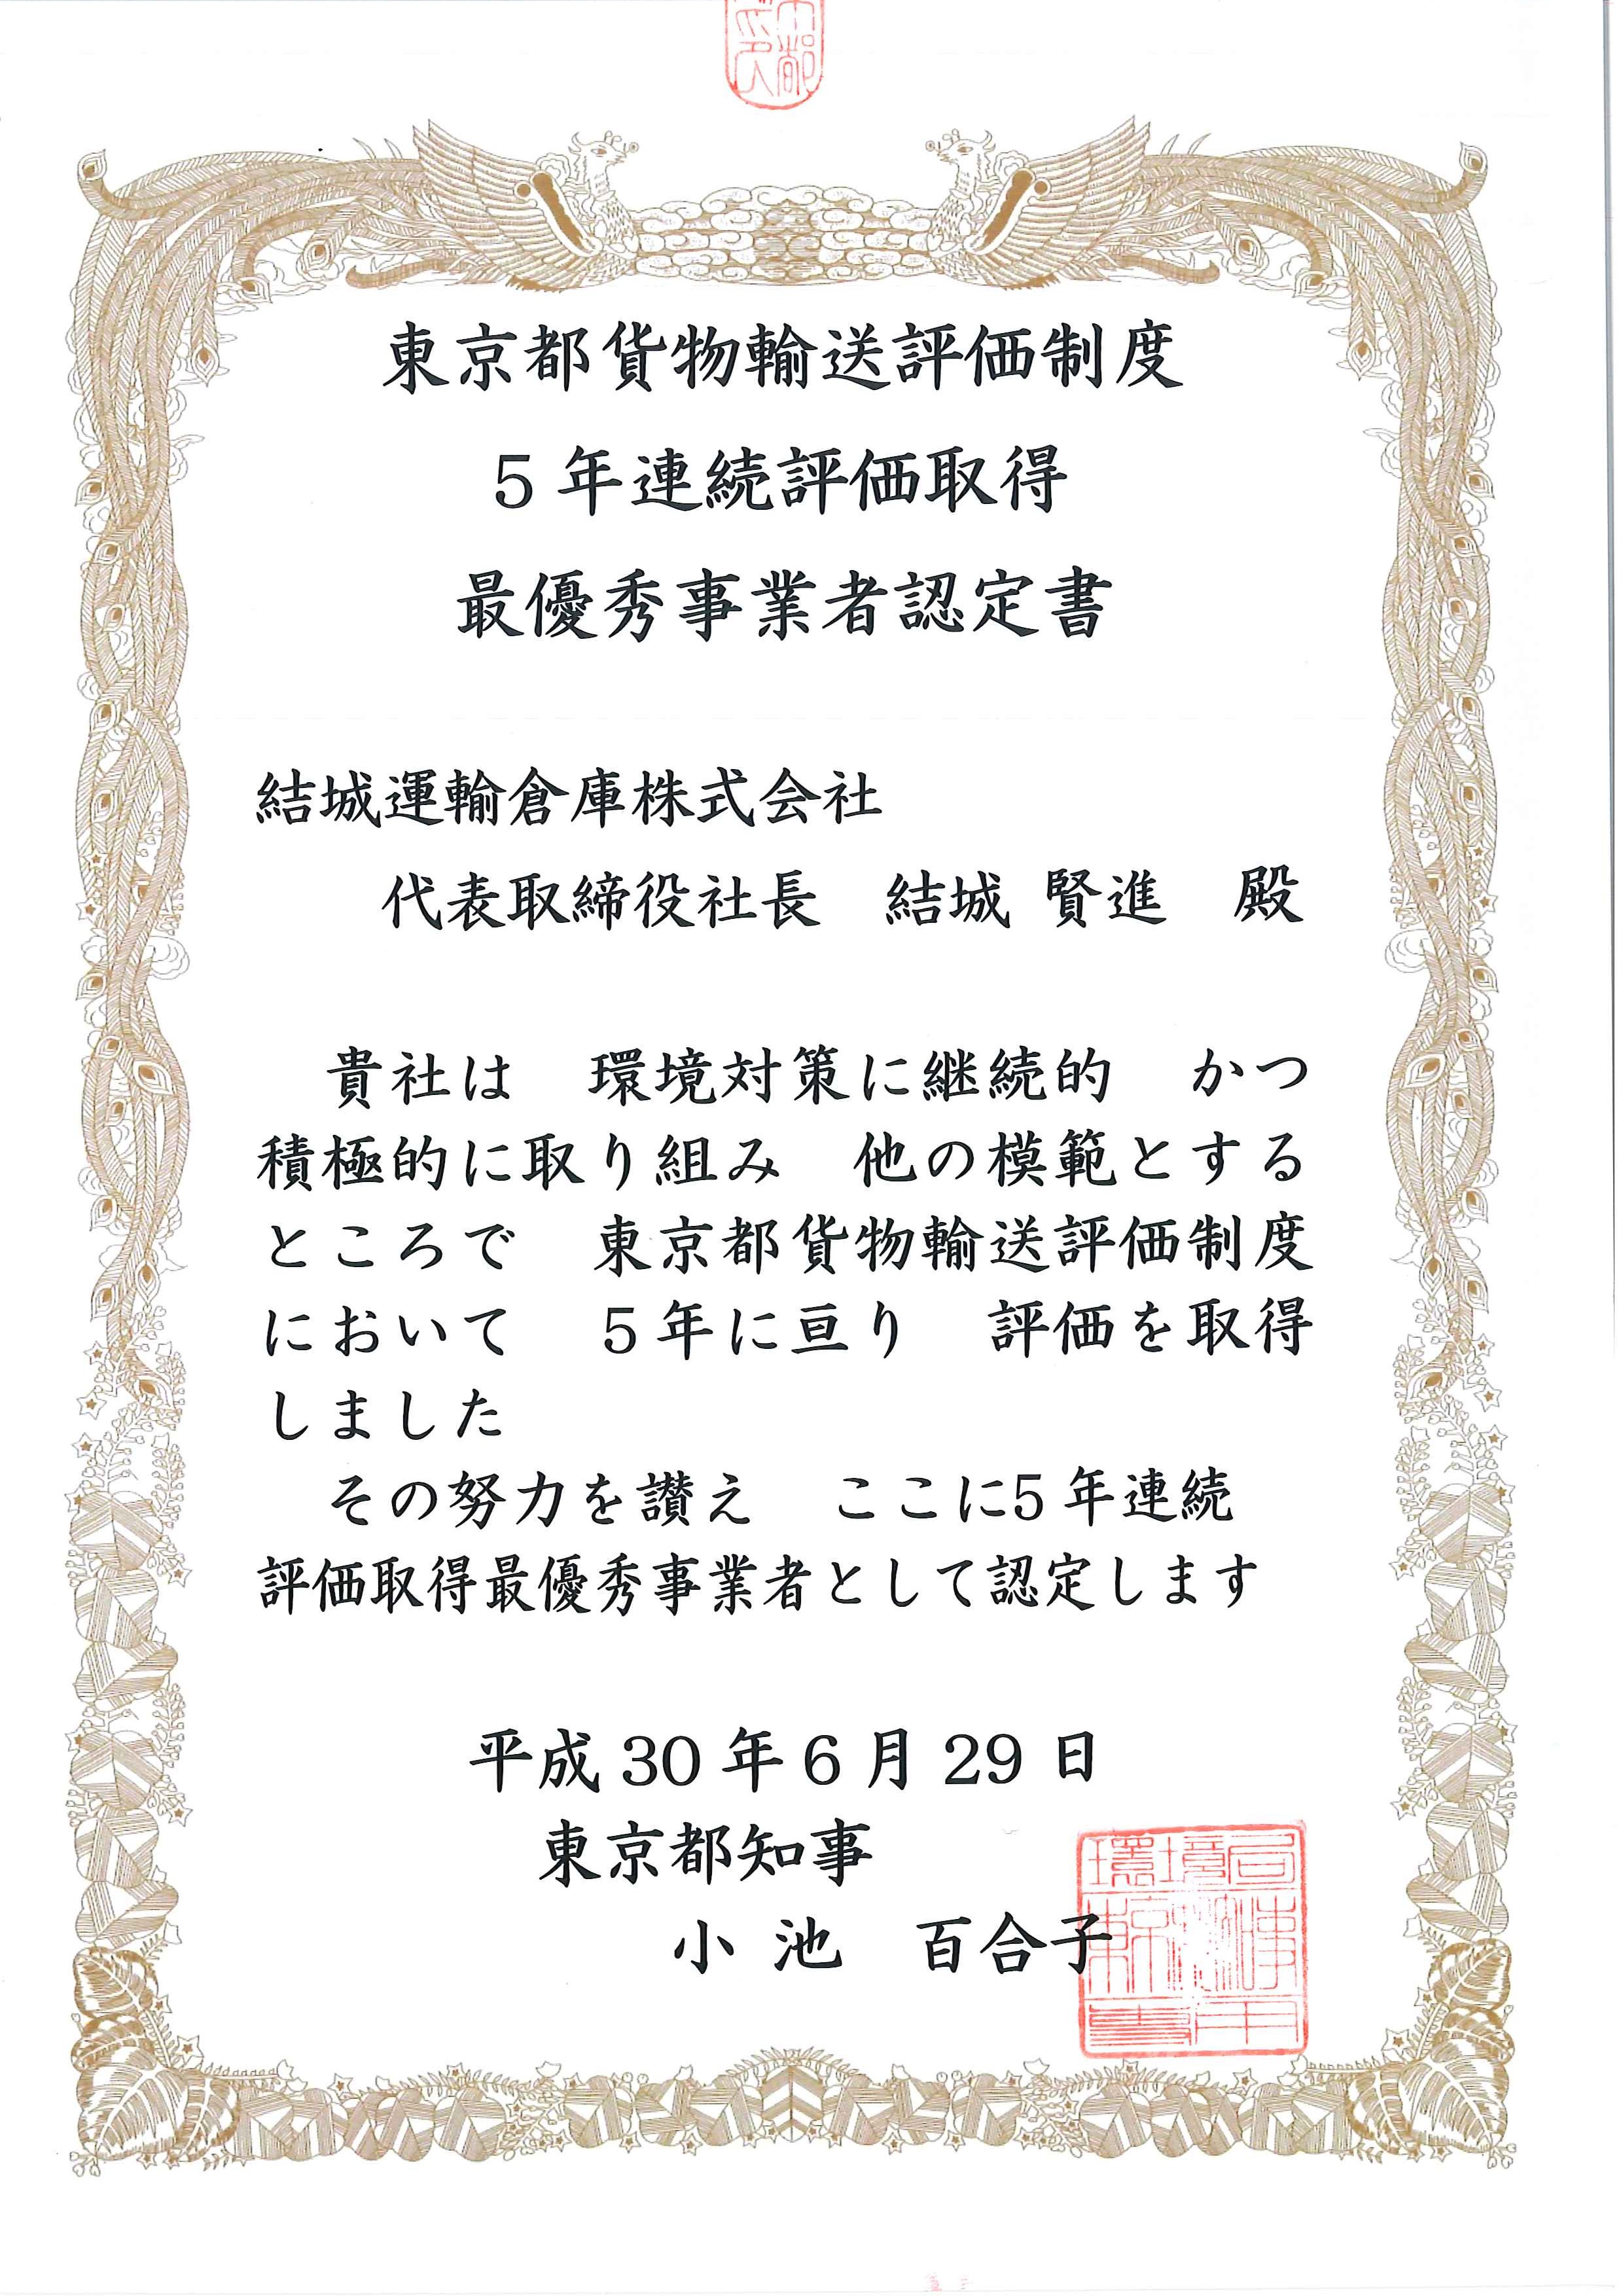 東京都貨物輸送評価制度
5年連続評価取得
最優秀事業者認定書
結城運輸倉庫株式会社
代表取締役社長　結城 賢進　殿
貴社は　環境対策に継続的　かつ
積極的に取り組み　他の模範とする
ところで　東京都貨物輸送評価制度
において　5年に亘り　評価を取得
しました
その努力を讃え　ここに5年連続
評価取得最優秀事業者として認定します
平成30年6月29日
東京都知事
小池　百合子
環境局